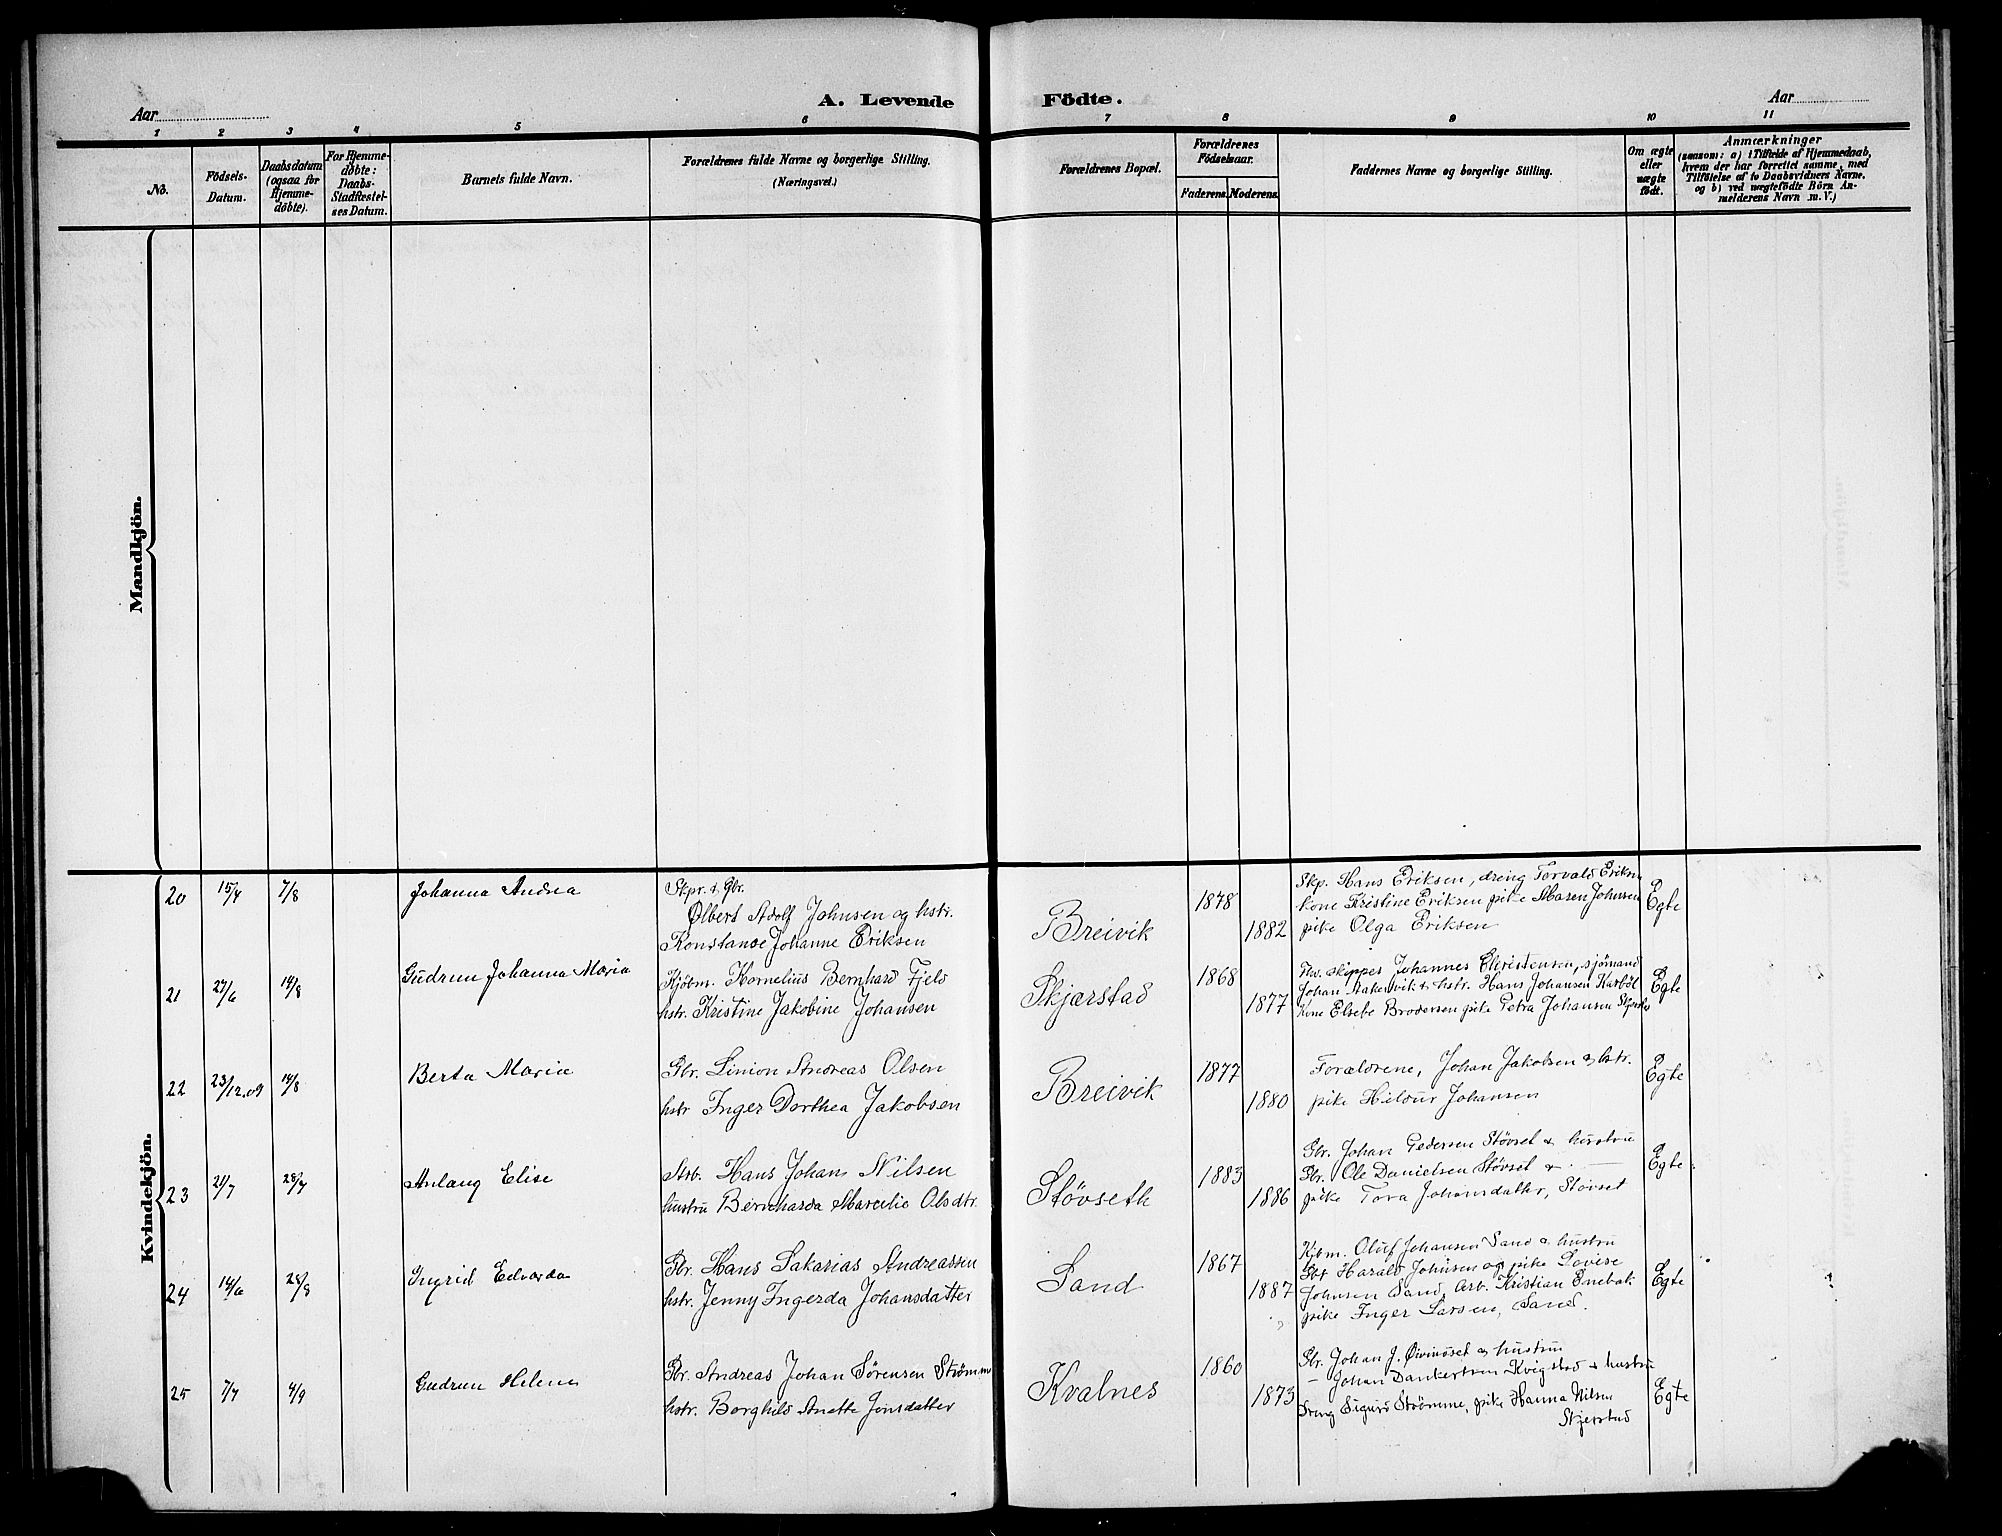 A. Levende Födte.
Aar
Aar
1 2 3 4 5 6 7 8 9 10 11
No.
Födsels-Datum.
Daabsdatum (ogsaa for Hjemme-döbte).
For Hjemme-döbte: Daabs-Stadfæstel-ses Datum.
Barnets fulde Navn.
Forældrenes fulde Navne og borgerlige Stilling.
(Næringsvei.)
Forældrenes Bopæl.
Forældrenes Födselsaar.
Faderens. Moderens.
Faddernes Navne og borgerlige Stilling.
Om ægte eller uægte födt.
Anmærkninger
(saasom: a) i Tilfælde af Hjemmedaab,
hvem der har forrettet samme, med
Tilföielse af to Daabsvidners Navne,
og b) ved uægtefödte Börn An-
melderens Navn m.V.)
Mandkjön.
Kvindekjön.
20 15/7 7/8 Johanna Andrea
Skpr. & Gbr.
Olbert Adolf Johnsen og hstr.
Konstanse Johanne Eriksen
Breivik 1878 1882
Skp. Hans Eriksen, dreng Torvald Eriksen
kone Kristine Eriksen pike Maren Johnsen
pike Olga Eriksen
Egte
21 29/6 14/8 Gudrun Johanna Maria
Kjöbm. Kornelius Bernhard Fjeld
hstr. Kristine Jakobine Johansen
Skjærstad 1868 1877
skipper Johannes Christensen, sjömand
Johan & hstr. Hans Johansen Karböl
Kone Elsebe Brodersen pike Petra Johansen
Egte
22 23/12.09 14/8 Berta Maria
Gbr. Simon Andreas Olsen
hstr Inger Dorthea Jakobsen
Breivik 1877 1880
Forældrene, Johan Jakobsen & hstr.
pike Hildur Johansen
Egte
23 21/7 28/7 Anlaug Elise
Arb. Hans Johan Nilsen
hustru Bernharda Marcelie Olsdtr.
Stövseth 1883 1886
Gbr. Johan Pedersen Stövset & hustru
Gbr. Ole Danielsen Stövset & —
pike Tora Johansdatter, Stövset
Egte
24 14/6 28/8 Ingrid Edvarda
Gbr. Hans Sakarias Andreassen
hstr. Jenny Ingerda Johansdatter
Sand 1867 1887
Kjbm. Oluf Johansen Sand & hustru
Gbr Harald Johnsen og pike Lovise
Johnsen Sand, Arb. Kristian Enebak
pike Inger Larsen, Sand.
Egte
25 7/7 4/9 Gudrun Helene
Gbr. Andreas Johan Sörensen Strömm
hstr. Borghild Anette Jonsdatter
Kvalnes 1860 1873
Gbr. Johan J. Öivindset & hustru
— Johan Dankertsen Kvigstad & hustru
Dreng Sigurd Strömme, pike Hanna Nilsen
Skjerstad
Egte